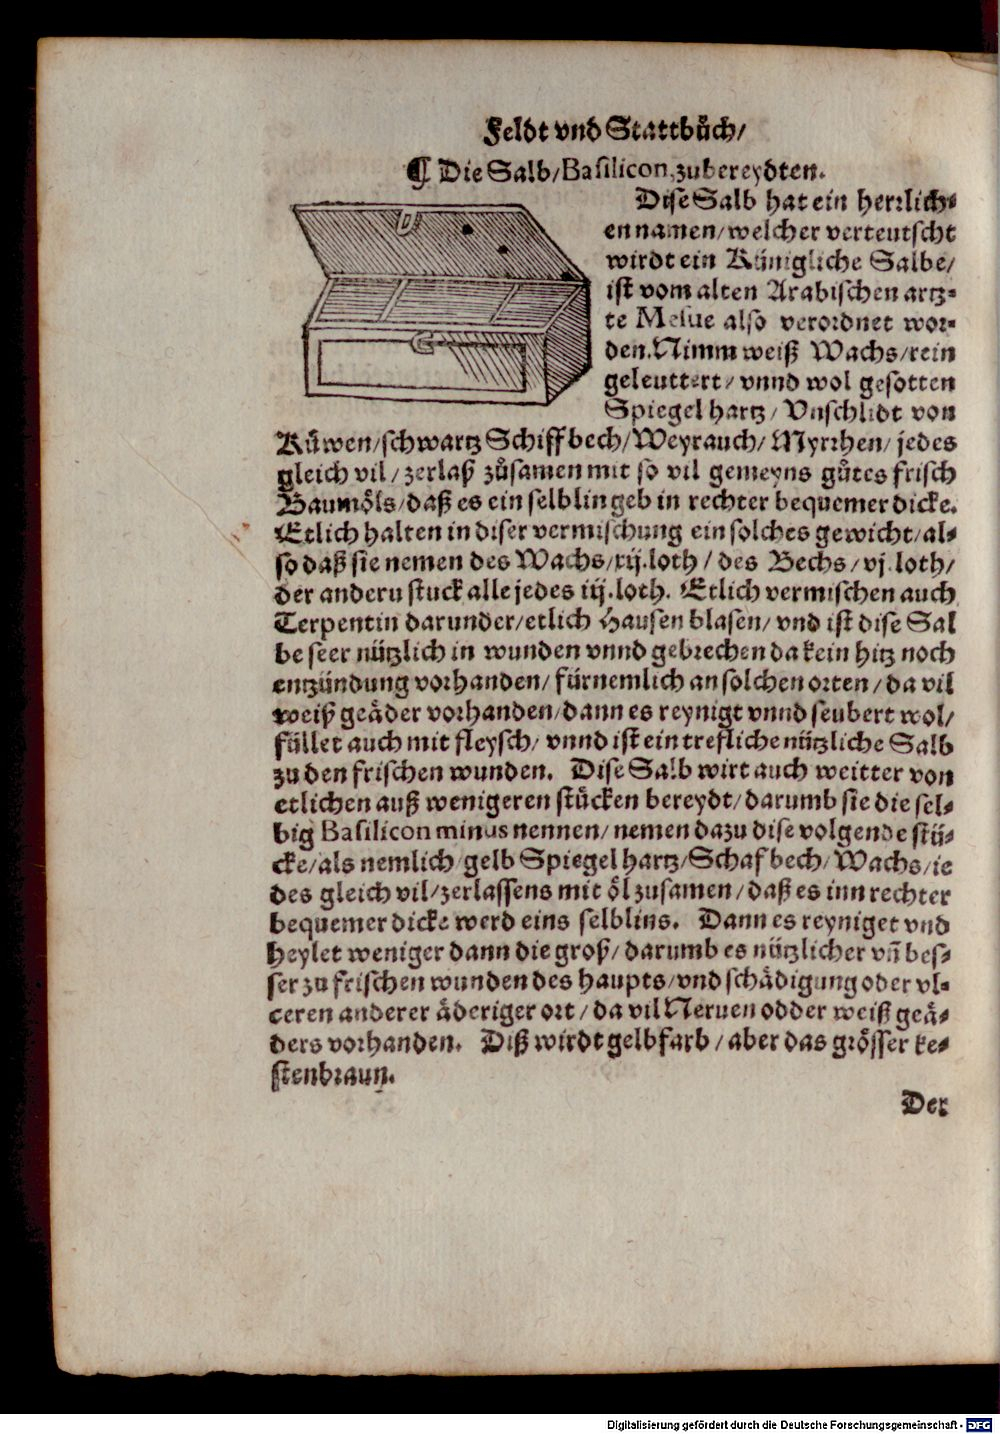 Feldt vnd Stattbůch/
¶ Die Salb/Basilicon, zubereydten.
Dise Salb hat ein herrlich-
en namen/welcher verteutscht
wirdt ein Künigliche Salbe/
ist vom alten Arabischen artz-
te Mesue also verordnet wor-
den. Nimm weiß Wachs/rein
geleuttert/vnnd wol gesotten
Spiegel hartz/Vnschlidt von
Kůwen/schwartz Schiffbech/Weyrauch/Myrrhen/jedes
gleich vil/zerlaß zůsamen mit so vil gemeyns gůtes frisch
Baumöls/daß es ein selblin geb in rechter bequemer dicke.
Etlich halten in diser vermischung ein solches gewicht/al-
so daß sie nemen des Wachs/xij.loth/des Bechs/vj.loth/
der anderu stuck alle jedes iij.loth. Etlich vermischen auch
Terpentin darunder/etlich Hausen blasen/vnd ist dise Sal
be seer nützlich in wunden vnnd gebrechen da kein hitz noch
entzündung vorhanden/fürnemlich an solchen orten/da vil
weiß geäder vorhanden/dann es reynigt vnnd seubert wol/
füllet auch mit fleysch/vnnd ist ein trefliche nützliche Salb
zu den frischen wunden. Dise Salb wirt auch weitter von
etlichen auß wenigeren stücken bereydt/darumb sie die sel-
big Basilicon minus nennen/nemen dazu dise volgende stü-
cke/als nemlich gelb Spiegel hartz/Schaf bech/Wachs/je
des gleich vil/zerlassens mit öl zusamen/daß es inn rechter
bequemer dicke werd eins selblins. Dann es reyniget vnd
heylet weniger dann die groß/darumb es nützlicher vñ bes-
ser zu frischen wunden des haupts/vnd schädigung oder vl-
ceren anderer äderiger ort/da vil Neruen odder weiß geä-
ders vorhanden. Diß wirdt gelbfarb/aber das grösser ke-
stenbraun.
Der
Digitalisierung gefördert durch die Deutsche Forschungsgemeinschaft - DFG